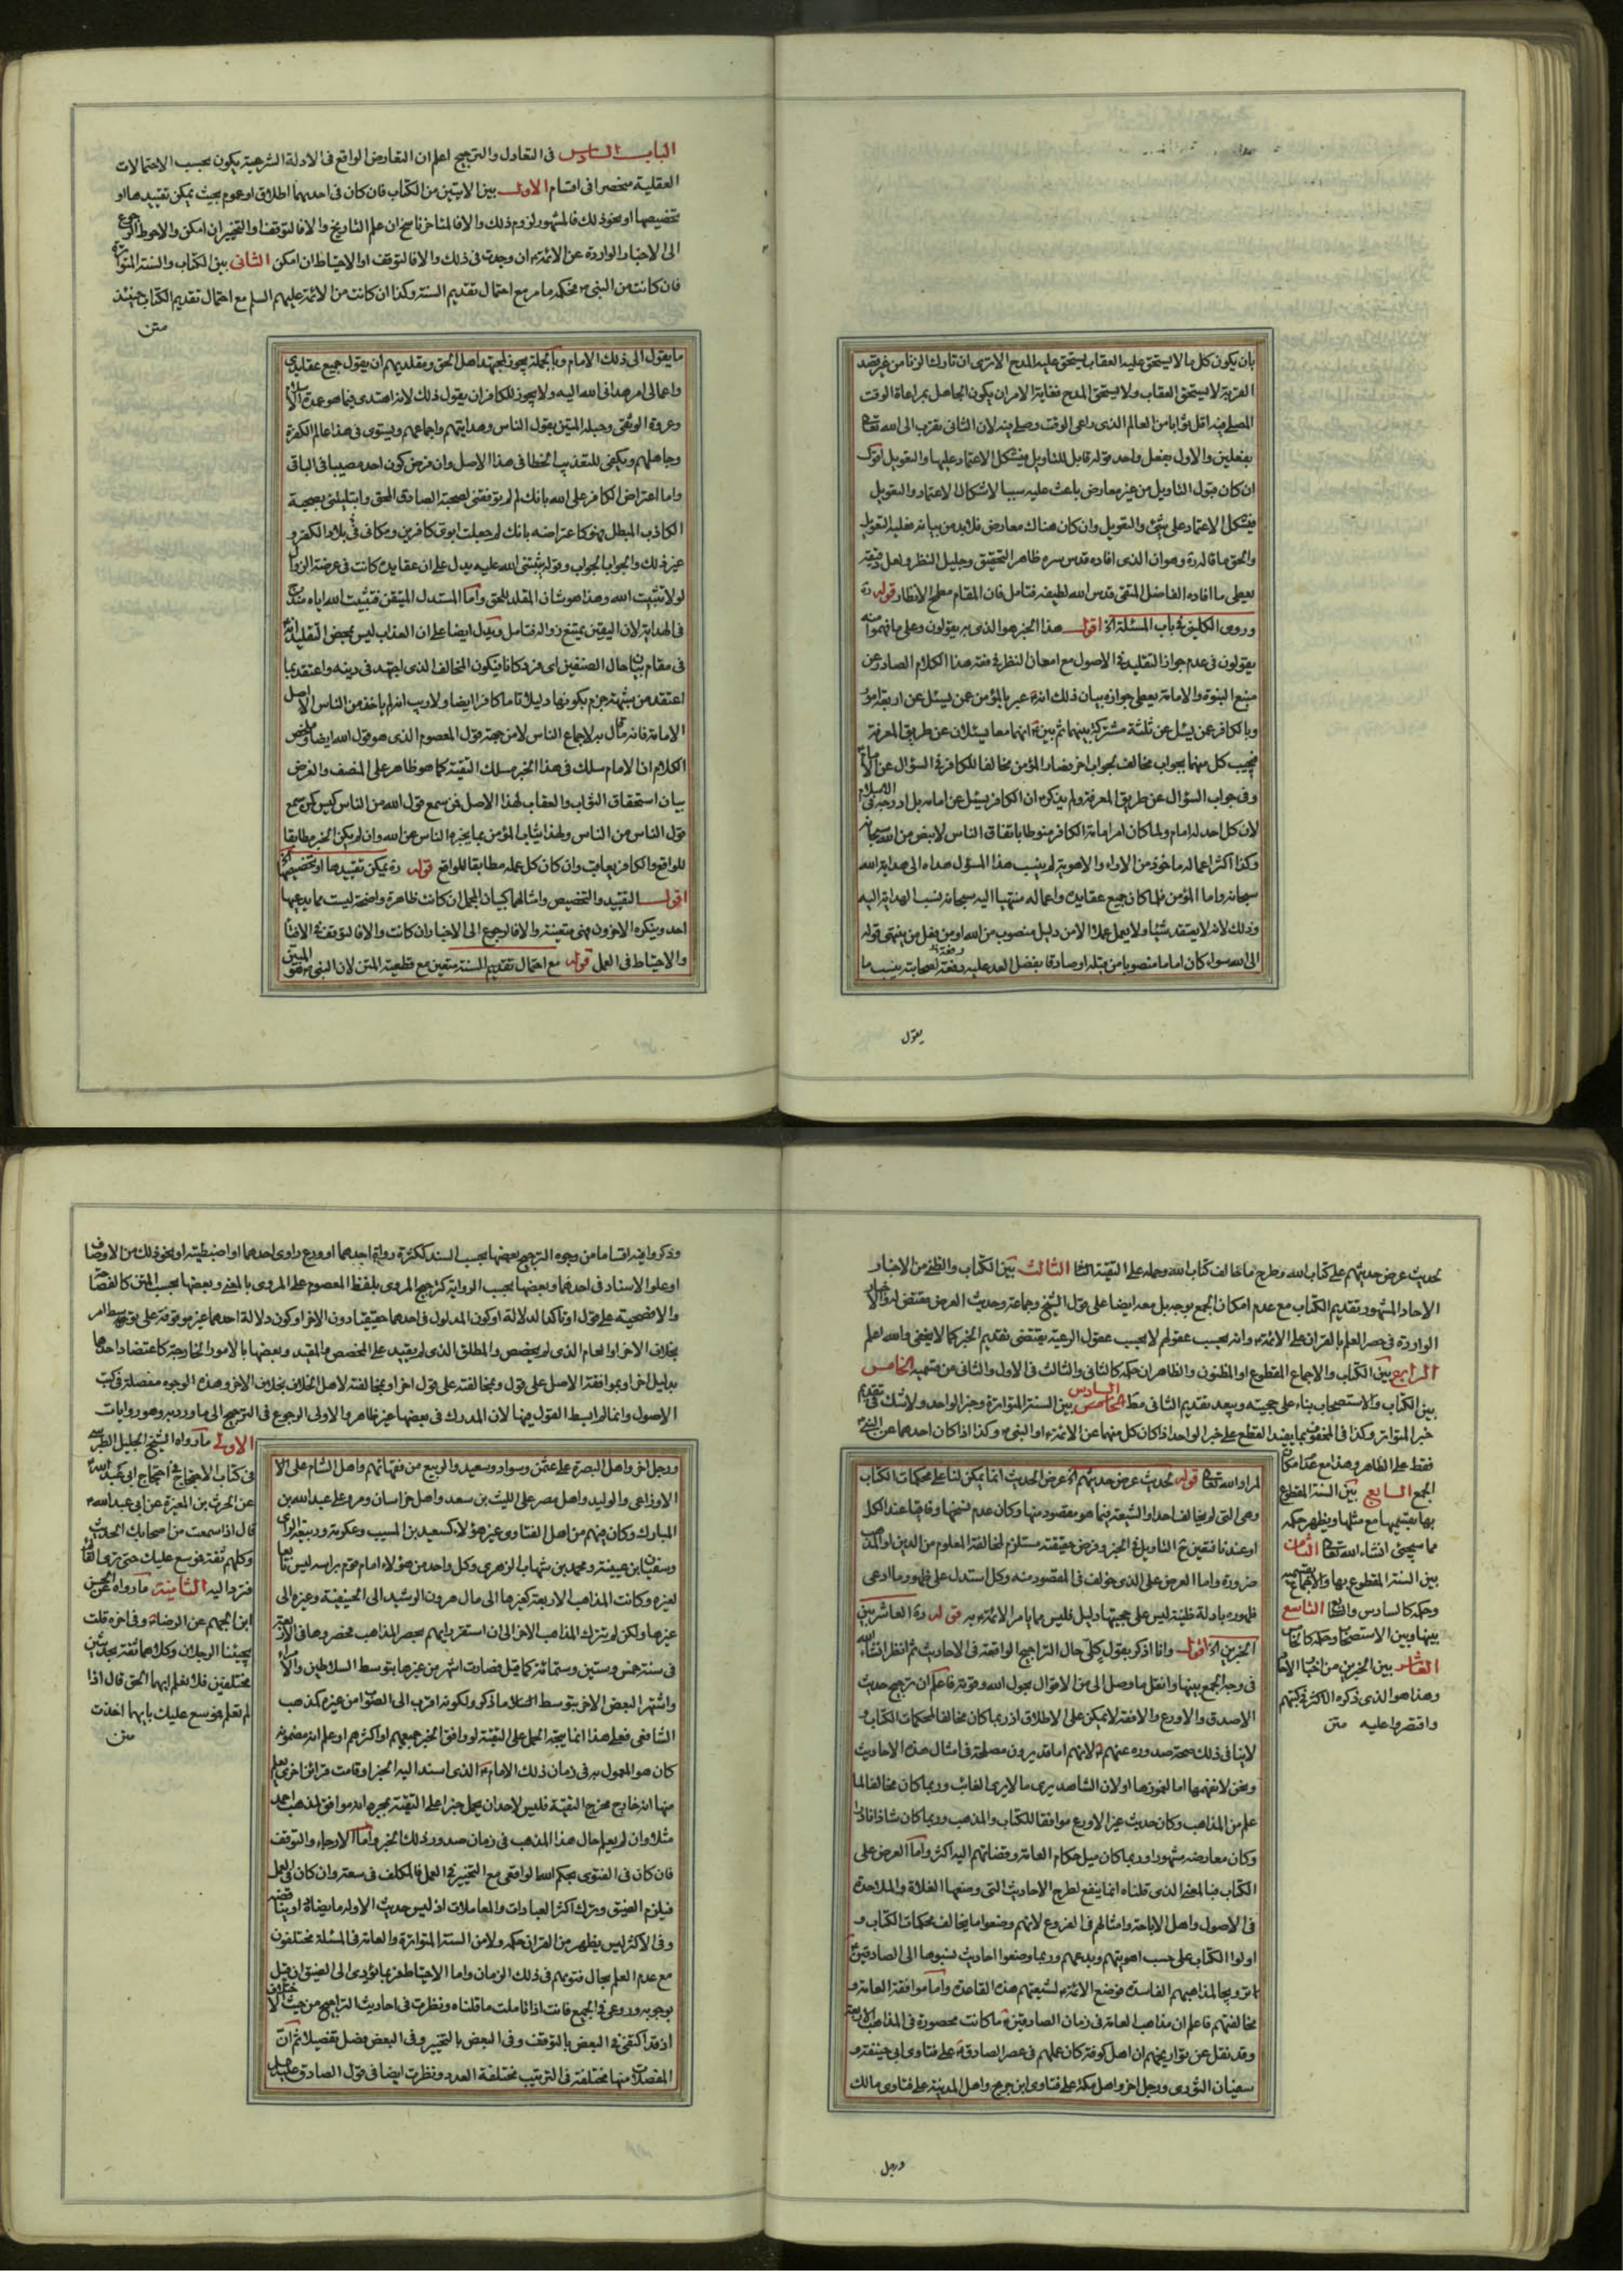 بان يكون كل ما لا يستحق عليه العقاب يستحق عليه المدح الا ترى ان تارك الزنا من غير قصد
القربة لا يستحق العقاب ولا يستحق المدح فغاية الامر ان يكون الجاهل بمراعاة الوقت
المصلى فيه اقل ثوابا من العالم الذى راعى الوقت وصلى فيه لان الثانى تقرب الى الله تعالى
بفعلين والاول بفعل واحد قوله قابل للتاويل فيشكل الاعتماد عليها والتعويل اقول
ان كان قبول التاويل من غير معارض باعث عليه سببا لاشكال الاعتماد والتعويل
فيشكل الاعتماد على شئ والتعويل وان كان هناك معارض فلابد من بيانه فعليه التعويل
والحق ما قاله ره وهو ان الذى افاده قدس سره ظاهر التحقيق وجليل النظر واهل
يعطى ما افاده الفاضل المتقى قدس الله لطيفه فتامل فان المقام مطرح الانظار قوله ره
وروى الكلينى فى باب المسئلة الخ اقول هذا الخبر هو الذى به يقولون وعلى ما فهموا منه
يقولون فى عدم جواز التقليد فى الاصول مع امعان النظر فى فقه هذا الكلام الصادر عن
منبع النبوة والامامة يعطى جوازه بيان ذلك انه عبر بالمؤمن عمن يسئل عن اربعة امور
وبالكافر عمن يسئل عن ثلثة مشتركة بينهما ثم بين انهما معا يسئلان عن طريق المعرفة
فيجيب كل منهما بجواب مخالف لجواب اخر فصار المؤمن مخالفا للكافر فى السؤال عن الامام
وفى جواب السؤال عن طريق المعرفة ولم يذكر ان الكافر يسئل عن امامه بل ادرجه فى الاسلام
لان كل احد له امام ولما كان امر امامة الكافر منوطا باتفاق الناس لا بنص من الله سبحانه
وكذا اكثر اعماله ماخوذ من الاراء والاهوية لم ينسب هذا المسؤل هداه الى هداية الله
سبحانه واما المؤمن فلما كان جميع عقايده واعماله منتهيا اليه سبحانه نسب الهداية اليه
وذلك لانه لا يعتقد شيئا ولا يعمل عملا الا من دليل منصوب من الله او من فعل من ينتهى قوله
الى الله سواء كان اماما منصوبا من قبله او صادقا بفضل الله عليه وفقه لصحابته ينسب ما
يقول
الباب السادس فى التعادل والترجيح اعلم ان التعارض الواقع فى الادلة الشرعية يكون بحسب الاحتمالات
العقلية منحصرا فى اقسام الاول بين الايتين من الكتاب فان كان فى احديهما اطلاق او عموم بحيث يمكن تقييدها او
تخصيصها او نحو ذلك فالمشهور لزوم ذلك والا فالمتاخر ناسخ ان علم التاريخ والا فالتوقف او التخيير ان امكن والاحوط الرجوع
الى الاخبار الواردة عن الائمة ان وجدت فى ذلك والا فالتوقف او الاحتياط ان امكن الثانى بين الكتاب والسنة المتواترة
فان كانت من النبى فحكمه ما مر مع احتمال تقديم السنة وكذا ان كانت من الائمة عليهم السلم مع احتمال تقديم الكتاب حينئذ
متن
ما يقول الى ذلك الامام وبالجملة يجوز لمجتهد اهل الحق ومقلديهم ان يقول جميع عقايدى
واعمالى امر هدانى الله اليه ولا يجوز للكافر ان يقول ذلك لانه اهتدى فيما هو عمدة الاسلام
وعروة الوثقى وحبله المتين بقول الناس وهدايتهم واجماعهم ويستوى فى هذا عالم الكفرة
وجاهلهم ويكفى للتعذيب الخطا فى هذا الاصل وان فرض كون احد مصيبا فى الباقى
واما اعتراض الكافر على الله بانك لم لم توفقنى لصحبة الصادق المحق وابتليتنى بصحبة
الكاذب المبطل فهو كاعتراضه بانك لم جعلت ابوى كافرين ومكانى فى بلاد الكفر و
غير ذلك والجواب الجواب وقوله ثبتنى الله عليه يدل على ان عقايده كانت فى عرضة الزوال
لولا تثبيت الله وهذا هو شان المقلد للحق واما المستدل المتيقن فتثبيت الله اياه مندرج
فى الهداية لان اليقين يمتنع زواله فتامل ويدل ايضا على ان العذاب ليس بمحض التقليد
فى مقام بيان حال الصنفين اى فرد كانا فيكون المخالف الذى اجتهد فى دينه واعتقد بما
اعتقد من شبهة جزم بكونها دليلا تاما كافرا ايضا ولا ريب انه لم ياخذ من الناس الا اصل
الامامة فانه قال به لاجماع الناس لا من جهة قول المعصوم الذى هو قول الله ايضا وملخص
الكلام ان الامام سلك فى هذا الخبر مسلك التقية كما هو ظاهر على المنصف والغرض
بيان استحقاق الثواب والعقاب لهذا الاصل فمن سمع قول الله من الناس كيس كمن سمع
قول الناس من الناس ولهذا يثاب المؤمن بما يخبره الناس عن الله وان لم يكن الخبر مطابقا
للواقع والكافر يعاقب وان كان كل عمله مطابقا للواقع قوله ره يمكن تقييدها او تخصيصها الخ
اقول التقييد والتخصيص وامثالهما كبيان المجمل ان كانت ظاهرة واضحة ليست مما يدعيها
احد وينكره الاخرون فهى متعينة والا فالرجوع الى الاخبار ان كانت والا فالتوقف فى الافتاء
والاحتياط فى العمل قوله مع احتمال تقديم السنة متعين مع قطعية المتن لان النبى هو المبين
لحديث عرض حديثهم على كتاب الله وطرح ما خالف كتاب الله وحمله على التقية الثالث بين الكتاب والظنى من الاخبار
الاحاد المشهور تقديم الكتاب مع عدم امكان الجمع بوجه بل معه ايضا على قول الشيخ وجماعة وحديث العرض مقتض له والاخبار
الواردة فى حصر العلم بالقران على الائمة وانه بحسب عقولهم لا بحسب عقول الرعية يقتضى تقديم الخبر كما لا يخفى والله اعلم
الرابع بين الكتاب والاجماع المقطوع او المظنون والظاهر ان حكمه كالثانى والثالث فى الاول والثانى من قسميه الخامس
بين الكتاب والاستصحاب بناء على حجيته ويبعد تقديم الثانى مطلقا السادس بين السنة المتواترة وخبر الواحد ولا شك فى تقديم
خبر المتواتر وكذا فى المحفوف بما يفيد القطع على خبر الواحد اذا كان كل منهما عن الائمة او النبى وكذا اذا كان احدهما عن النبى
فقط على الظاهر وهذا مع عدم امكان
الجمع السابع بين السنة المقطوع
بها بقسميها مع مثلها ويظهر حكمه
مما سيجئ انشاء الله تعالى الثامن
بين السنة المقطوع بها والاجماع بقسميه
وحكمه كالسادس والثالث التاسع
بينها وبين الاستصحاب وحكمه كالخامس
العاشر بين الخبرين من اخبار الاحاد
وهذا هو الذى ذكره الاكثر فى كتبهم
واقتصروا عليه متن
المراد الله تعالى قوله لحديث عرض حديثهم الخ عرض الحديث انما يمكن لنا على محكمات الكتاب
وهى التى لم يخالف احد او الشيعة فيما هو مقصود منها وكان عدم نسخها وفاقيا عند الكل
او عندنا فتعين ح التاويل فى الخبر وفرض حقيقته مستلزم لمخالفة المعلوم من الدين او المذهب
ضرورة واما العرض على الذى خولف فى المقصود منه وكل استدل على ظهور ما ادعى
ظهوره بادلة ظنية ليس على حجيتها دليل فليس مما يامر الائمة به قوله ره العاشر بين
الخبرين الخ اقول وانا اذكر بقول كلى حال التراجيح الواقعة فى الاحاديث ثم انظر انشاء الله
فى وجه الجمع بينها وانقل ما وصل الى من الاقوال بحول الله وقوته فاعلم ان ترجيح حديث
الاصدق والاورع والافقه لا يمكن على الاطلاق اذ ربما كان مخالفا لمحكمات الكتاب و
لا ينافى ذلك صحة صدوره عنهم لانهم اما قد يرون مصلحة فى امثال هذه الاحاديث
ونحن لا نفهمها اما لغموضها او لان الشاهد يرى ما لا يرى الغائب وربما كان مخالفا لما
علم من المذاهب وكان حديث غير الاورع موافقا للكتاب والمذهب وربما كان شاذا نادرا
وكان معارضه مشهورا وربما كان ميل حكام العامة وقضاتهم اليه اكثر واما العرض على
الكتاب فبالمعنى الذى قلناه انما ينفع لطرح الاحاديث التى وضعها الغلاة والملاحدة
فى الاصول واهل الاباحة وامثالهم فى الفروع لانهم وضعوا ما يخالف محكمات الكتاب و
اولوا الكتاب على حسب اهويتهم وبدعهم وربما وضعوا احاديث نسبوها الى الصادقين
ترويجا لمذاهبهم الفاسدة فوضع الائمة لشيعتهم هذه القاعدة واما موافقة العامة و
مخالفتهم فاعلم ان مذاهب العامة فى زمان الصادقين ما كانت محصورة فى المذاهب الاربعة
وقد نقل عن تواريخهم ان اهل كوفة كان عملهم فى عصر الصادق على فتاوى ابى حنيفة و
سفيان الثورى ورجل اخر واهل مكة على فتاوى ابن جريج واهل المدينة على فتاوى مالك
ورجل
وذكروا فيه اقساما من وجوه الترجيح بعضها بحسب السند ككثرة رواة احدهما او ورع راوى احدهما او اضبطيته او نحو ذلك من الاوصاف
او علو الاسناد فى احدهما وبعضها بحسب الرواية كترجيح المروى بلفظ المعصوم على المروى بالمعنى وبعضها بحسب المتن كالفصاحة
والافصحية على قول او تاكد الدلالة او كون المدلول فى احدهما حقيقيا دون الاخر او كون دلالة احدهما غير موقوفة على توسط امر
بخلاف الاخر او العام الذى لم يخصص والمطلق الذى لم يقيد على المخصص والمقيد وبعضها بالامور الخارجة كاعتضاد احدهما
بدليل اخر او بموافقة الاصل على قول وبمخالفته على قول اخر او بمخالفته لاهل الخلاف بخلاف الاخر وهذه الوجوه مفصلة فى كتب
الاصول وانما لم ابسط القول فيها لان المدرك فى بعضها غير ظاهر والاولى الرجوع فى الترجيح الى ما ورد به وهو روايات
الاولى ما رواه الشيخ الجليل الطبرسى
فى كتاب الاحتجاج فى احتجاج ابى عبد الله
عن الحرث بن المغيرة عن ابى عبد الله
قال اذا سمعت من اصحابك الحديث
وكلهم ثقة فموسع عليك حتى ترى القائم
فترد اليه الثانية ما رواه عن الحسن
ابن الجهم عن الرضا وفى اخره قلت
يجيئنا الرجلان وكلاهما ثقة بحديثين
مختلفين فلا نعلم ايهما الحق قال اذا
لم تعلم فموسع عليك بايهما اخذت
متن
ورجل اخر واهل البصرة على عثمن وسواد وسعيد والربيع من فقهائهم واهل الشام على الا
الاوزاعى والوليد واهل مصر على الليث بن سعد واهل خراسان ومرو على عبد الله بن
المبارك وكان فيهم من اهل الفتاوى غير هؤلاء كسعيد بن المسيب وعكرمة وربيعة الراى
وسفيان بن عيينة ومحمد بن شهاب الزهرى وكل واحد من هؤلاء امام قوم براسه ليس تابعا
لغيره وكانت المذاهب الاربعة كغيرها الى ان مال هرون الرشيد الى الحنيفية وغيره الى
غيرها ولكن لم يترك المذاهب الاخر الى ان استقر رايهم بحصر المذاهب فحصروها فى الاربعة
فى سنة خمس وستين وستمائة كما قيل فصارت اشهر من غيرها بتوسط السلاطين والامراء
واشتهر البعض الاخر بتوسط ما ذكر ولكونه اقرب الى الصواب من غيره كمذهب
الشافعى فعلى هذا انما يتجه الحمل على التقية لو وافق الخبر جميعهم او اكثرهم او علم ان مضمونه
كان هو المعمول به فى زمان ذلك الامام الذى اسند اليه الخبر او قامت قرائن اخرى يعلم
منها انه خارج مخرج التقية فليس لاحد ان يحمل خبرا على التقية بمجرد انه موافق لمذهب احمد
مثلا وان لم يعلم حال هذا المذهب فى زمان صدور ذلك الخبر واما الارجاء والتوقف
فان كان فى الفتوى بحكم الله الواقعى مع التخيير فى العمل فالمكلف فى سعة وان كان فى العمل
فيلزم الضيق وترك اكثر العبادات والمعاملات اذ ليس حديث الا وله ما يضاده او يناقضه
وفى الاكثر ليس يظهر من القران حكمه ولا من السنة المتواترة والعامة فى المسئلة مختلفون
مع عدم العلم بحال فتويهم فى ذلك الزمان واما الاحتياط فربما يؤدى الى الضيق ان قيل
بوجوبه وروعى فى الجميع فانت اذا تاملت ما قلناه ونظرت فى احاديث التراجيح من حيث الاختلاف
اذ قد اكتفى فى البعض بالتوقف وفى البعض بالتخيير وفى البعض فصل تفصيلا ثم ان
المفصلات منها مختلفة فى الترتيب مختلفة العدد ونظرت ايضا فى قول الصادق